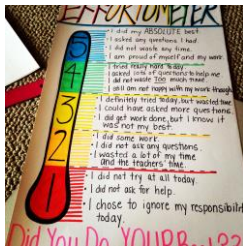 EFFORT-O-METER
5
• I did my ABSOLUTE best.
• I asked any questions I had.
• I did not waste any time.
• I am proud of myself and my work
4
• I tried really hard today.
• I asked lots of questions to help me
• I did not waste TOO much time.
• I still am not happy with my work though
3
• I definitely tried today, but wasted time
• I could have asked more questions.
• I did get work done, but I know it
was not my best.
2
• I did some work.
• I did not ask any questions.
• I wasted a lot of my time
and the teachers' time.
1
• I did not try at all today.
• I did not ask for help.
• I chose to ignore my responsibilit
today.
Did You Do YOUR